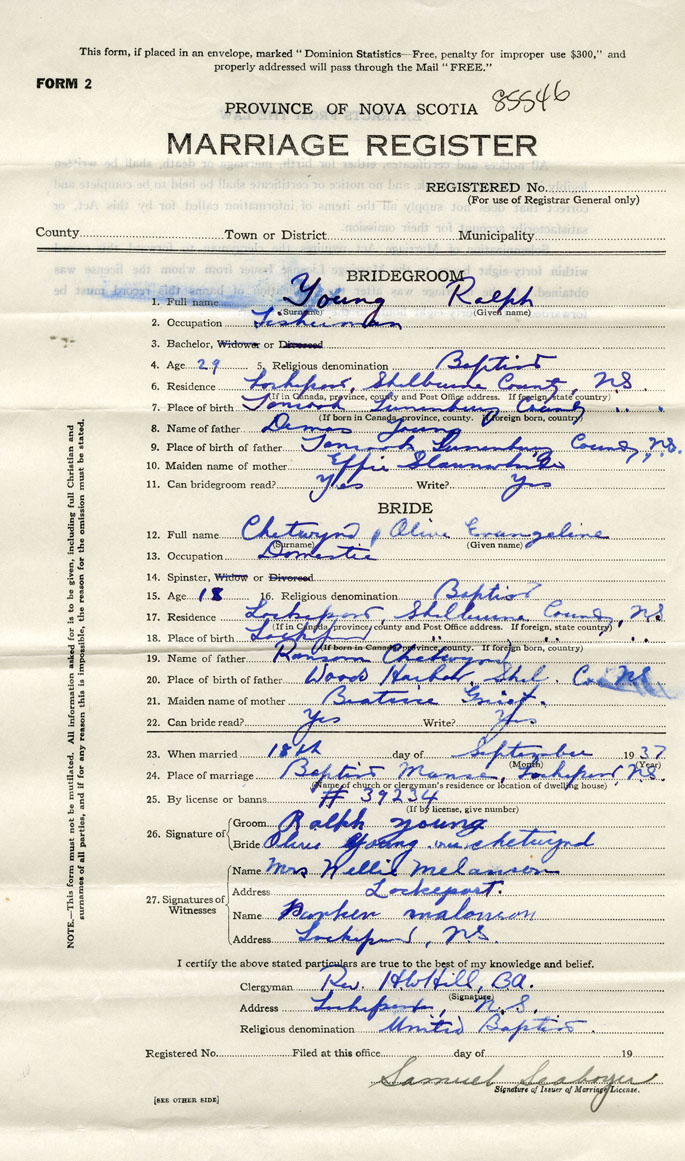 This form, if placed in an envelope, marked "Dominion Statistics—Free, penalty for improper use $300," and
properly addressed will pass through the Mail "FREE."
FORM 2
PROVINCE OF NOVA SCOTIA 85546
MARRIAGE REGISTER
REGISTERED No.
(For use of Registrar General only)
County Town or District Municipality
BRIDEGROOM
1. Full name Young Ralph
(Surname) (Given name)
2. Occupation Fisherman
3. Bachelor, Widower or Divorced
4. Age 29 5. Religious denomination Baptist
6. Residence Lockeport, Shelburne County, N.S.
(If in Canada, province, county and Post Office address. If foreign, state country)
7. Place of birth Tancook Lunenburg County " "
(If born in Canada, province, county. If foreign born, country)
8. Name of father Demas Young
9. Place of birth of father Tancook Lunenburg County, N.S.
10. Maiden name of mother Effie
11. Can bridegroom read? Yes Write? Yes
BRIDE
12. Full name Chetwynd, Olive Evangeline
(Surname) (Given name)
13. Occupation Domestic
14. Spinster, Widow or Divorced
15. Age 18 16. Religious denomination Baptist
17. Residence Lockeport, Shelburne County, N.S.
(If in Canada, province, county and Post Office address. If foreign, state country)
18. Place of birth Lockeport " " "
(If born in Canada, province, county. If foreign born, country)
19. Name of father Ransom Chetwynd
20. Place of birth of father Woods Harbor, Shel. Co. N.S.
21. Maiden name of mother Beatrice
22. Can bride read? Yes Write? Yes
23. When married 18th day of September 1937
(Month) (Year)
24. Place of marriage Baptist Manse, Lockeport, N.S.
(Name of church or clergyman's residence or location of dwelling house)
25. By license or banns # 39234
(If by license, give number)
26. Signature of Groom Ralph Young
Bride Olive Young nee Chetwynd
27. Signatures of Witnesses
Name Mrs Willie Melanson
Address Lockeport.
Name malonson
Address Lockeport, N.S.
I certify the above stated particulars are true to the best of my knowledge and belief.
Clergyman Rev. H W Hill, B.A.
(Signature)
Address Lockeport, N.S.
Religious denomination United Baptist.
Registered No. Filed at this office day of 19
Samuel Seaboyer
Signature of Issuer of Marriage License.
[SEE OTHER SIDE]
NOTE.—This form must not be mutilated. All information asked for is to be given, including full Christian and
surnames of all parties, and if for any reason this is impossible, the reason for the omission must be stated.